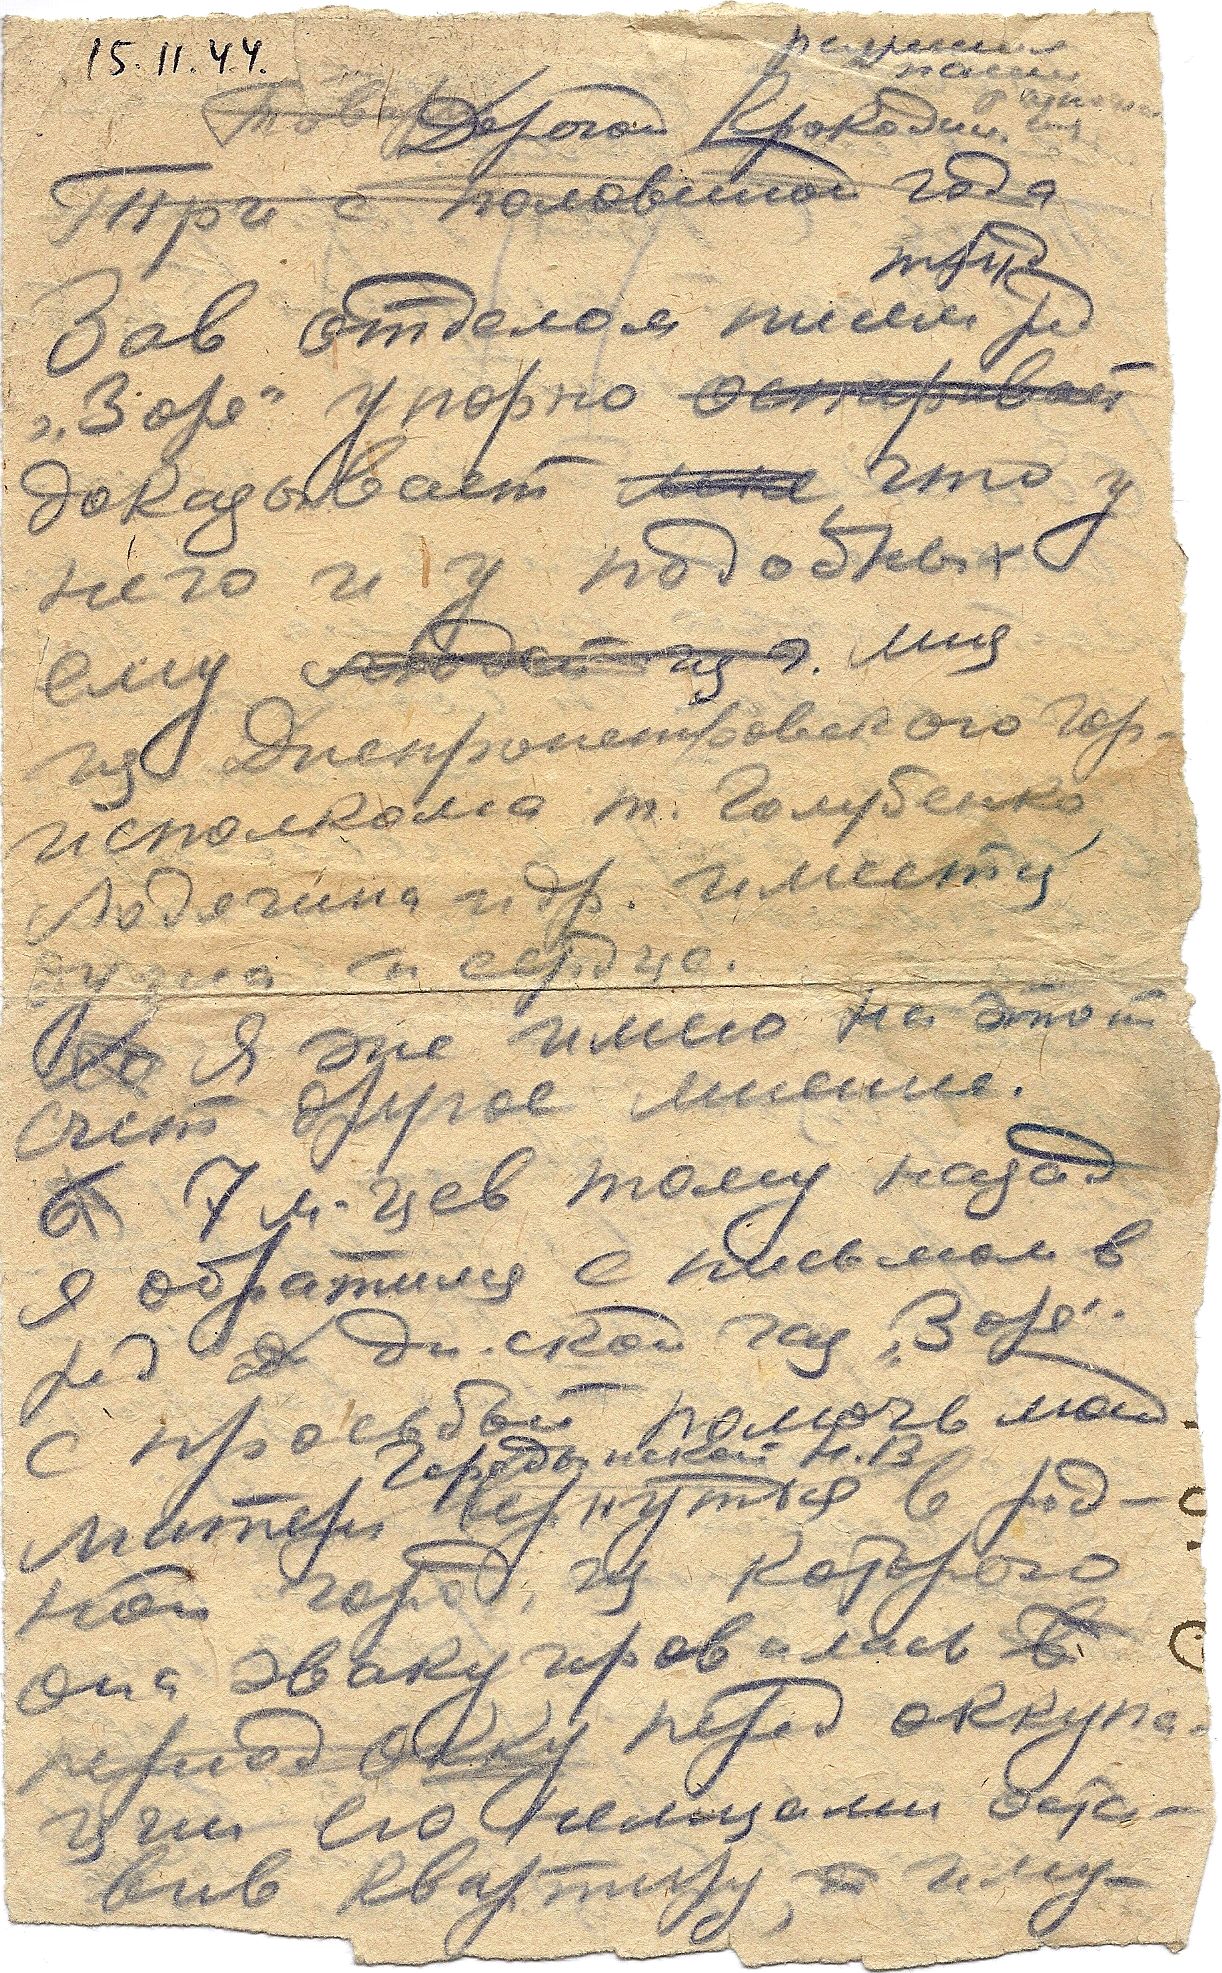 15.11.44.
разрешил
Товар Дорогой Крокодил.
Три с половиной года
Зав отделом писем ред
"Зоря" упорно оспаривает
доказывает мне что у
него и у подобных
ему людей из г. лиц
из Днепропетровского гор-
исполкома т. Голубенко,
Лодягина и др. имеется
душа и сердце.
Я же имею на этот
счет другое мнение.
7 м-цев тому назад
я обратился с письмом в
ред Дн-ской газ "Зоря".
с просьбой помочь моей
Городынской Н.В
матери вернуться в род-
ной город, из которого
она эвакуировалась в
период окку перед оккупа-
ции его немцами оста-
вив квартиру, и иму-